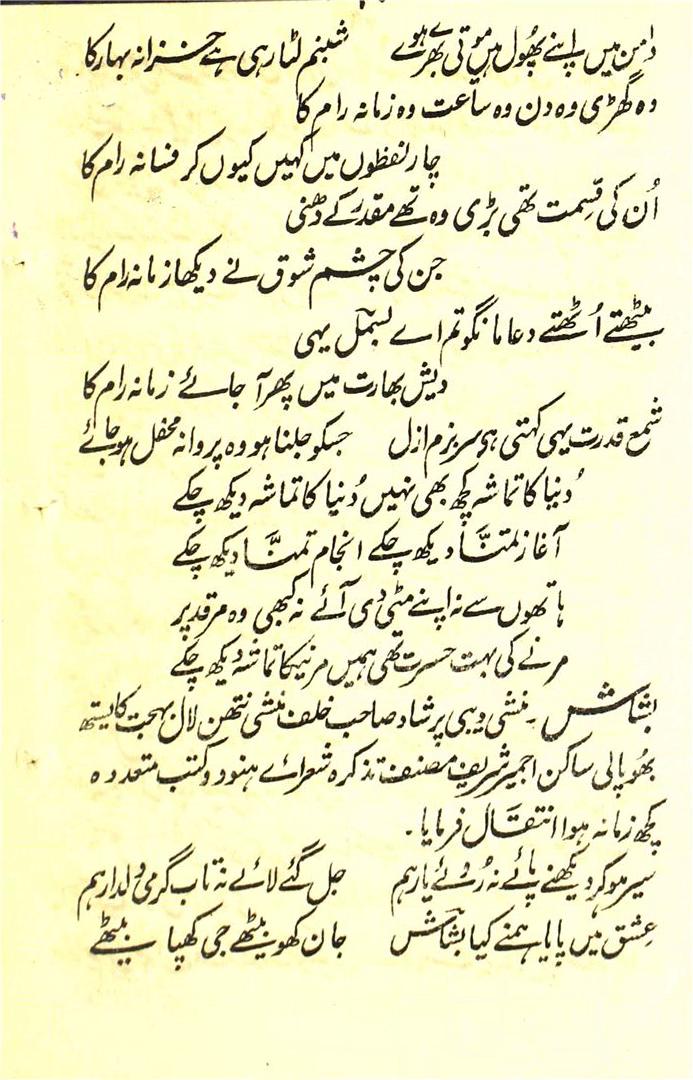 دامن میں اپنے پھول ہیں موتی بھرے ہوے شبنم لٹا رہی ہے خزانہ بہار کا
وہ گھڑی وہ دن وہ ساعت وہ زمانہ رام کا
چار لفظوں میں کہیں کیوں کر فسانہ رام کا
اُن کی قسمت تھی بڑی وہ تھے مقدر کے دھنی
جن کی چشم شوق نے دیکھا زمانہ رام کا
بیٹھتے اُٹھتے دعا مانگو تم اے بسمل یہی
دیش بھارت میں پھر آ جائے زمانہ رام کا
شمع قدرت یہی کہتی ہی سر بزم ازل جسکو جلنا ہو وہ پروانہ محفل ہو جائے
دُنیا کا تماشہ کچھ بھی نہیں دُنیا کا تماشہ دیکھ چکے
آغاز تمنّا دیکھ چکے انجام تمنّا دیکھ چکے
ہاتھوں سے نہ اپنے مٹی دی آئے نہ کبھی وہ مرقد پر
مرنے کی بہت حسرت تھی ہمیں مرنیکا تماشہ دیکھ چکے
بشاش ۔ منشی دیبی پرشاد صاحب خلف منشی نتھن لال بہجت کایستھ
بھوپالی ساکن اجمیر شریف مصنف تذکرہ شعراے ہنود و کتب متعددہ
کچھ زمانہ ہوا انتقال فرمایا۔
سیر ہو کر دیکھنے پائے نہ رُوئے یار ہم جل گئے لائے نہ تاب گرمی دلدار ہم
عشق میں پایا ہمنے کیا بشاش جان کھو بیٹھے جی کھپا بیٹھے